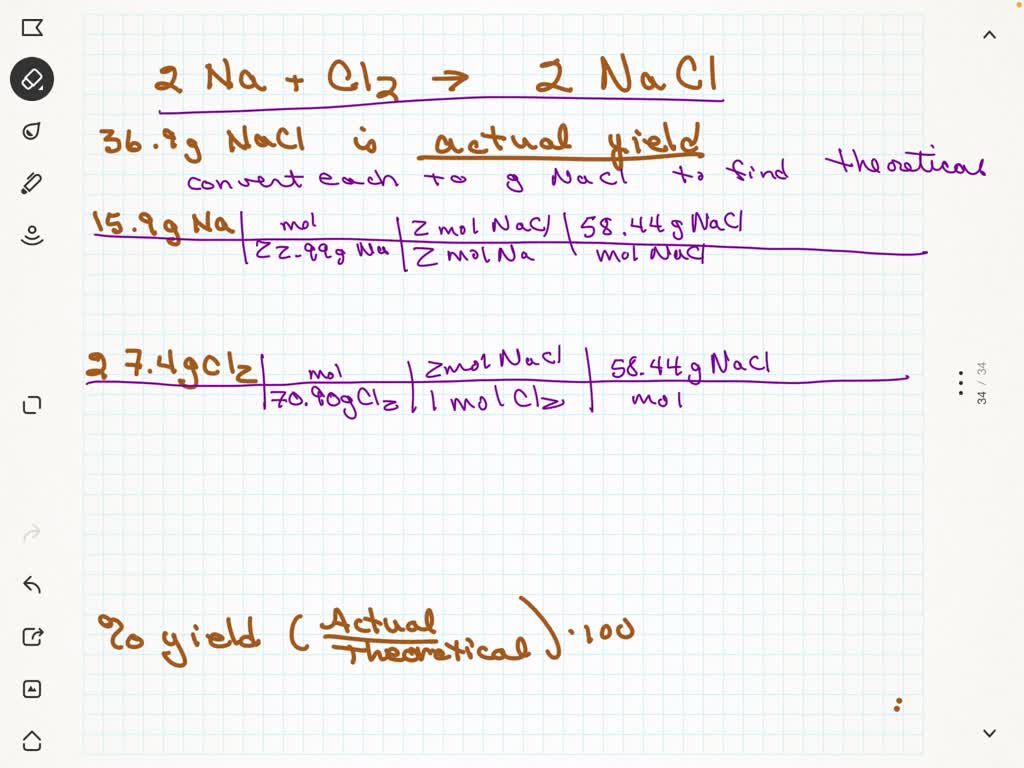 2 Na + Cl2 → 2 NaCl
36.9g NaCl is actual yield
convert each to g NaCl to find theoretical
15.9g Na | mol | 2 mol NaCl | 58.44g NaCl
22.99g Na | 2 mol Na | mol NaCl
27.4g Cl2 | mol | 2mol NaCl | 58.44g NaCl
70.90g Cl2 | 1 mol Cl2 | mol
34 / 34
% yield (Actual
Theoretical) · 100